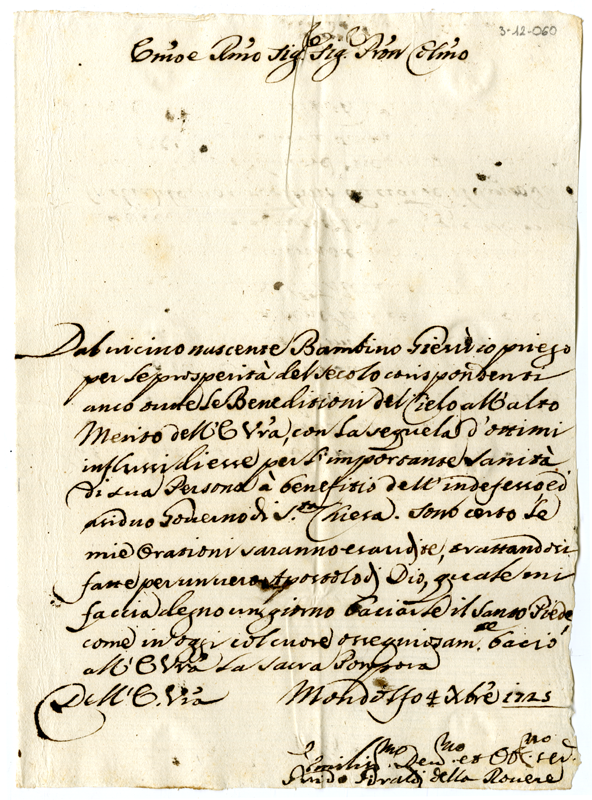 3-12-060
Emo e Rmo Sig.r Sig. Pron Colmo
Dal vicino nascente Bambino Giesù io priego
per le prosperità del secolo corispondenti
anco tutte le Beneditioni del Cielo all'alto
Merito dell'E Vra, con la seguela d'ottimi
influssi di esse per l'importante Sanità
di sua Persona à benefitio dell'indefesso ed
assiduo Governo di S.ta Chiesa. Sono certo le
mie Orationi saranno esaudite, trattandosi
fatte per un vero Apostolo di Dio, quale mi
faccia degno un giorno baciarle il Santo Piede
come in oggi col cuore ossequiosam.te bacio
all'E Vra La Sacra Porpora
Dell'E. Vra Mondolfo 4 Xbre 1725
Humilis.mo Dev.mo et Obl.mo ser.
della Rovere